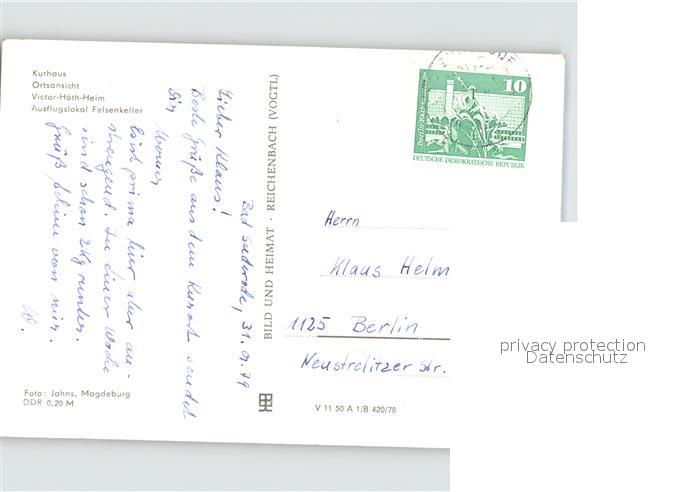 Kurhaus
Ortsansicht
Victor-Höth-Heim
Ausflugslokal Felsenkeller
Bad Suderode, 31.01.79
Lieber Klaus!
Beste Grüße aus dem Kurort sendet
Dir Werner
Ist prima hier aber an-
strengend. In einer Woche
sind schon 2 Kg runter.
Grüß schön von mir.
W.
Foto: Jahns, Magdeburg
DDR 0,20 M
BILD UND HEIMAT · REICHENBACH (VOGTL)
V 11 50 A 1/B 420/78
10
DEUTSCHE DEMOKRATISCHE REPUBLIK
Herrn
Klaus Helm
1125 Berlin
Neustrelitzer Str.
privacy protection
Datenschutz